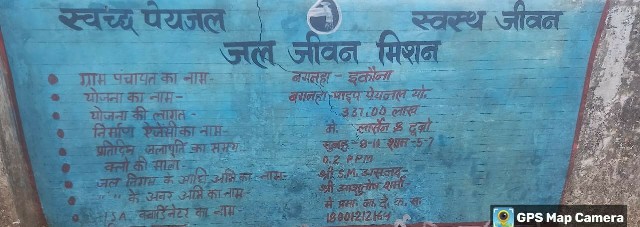 स्वच्छ पेयजल स्वस्थ जीवन
जल जीवन मिशन
ग्राम पंचायत का नाम- बगनहा - इकौना
योजना का नाम- बगनहा-पाइप पेयजल यो.
योजना की लागत- 337.00 लाख
निर्माण ऐजेंसी का नाम- मे. लार्सन & टुब्रो
प्रतिदिन जलापूर्ति का समय सुबह-8-11 शाम-5-7
क्लो की मात्रा- 0.2 P.P.M
जल निगम के अधि अभि का नाम- श्री S.M. असजद-
" " के अवर अभि का नाम- श्री आशुतोष शर्मा
ISA क्वार्डिनेटर का नाम
18001212164
GPS Map Camera